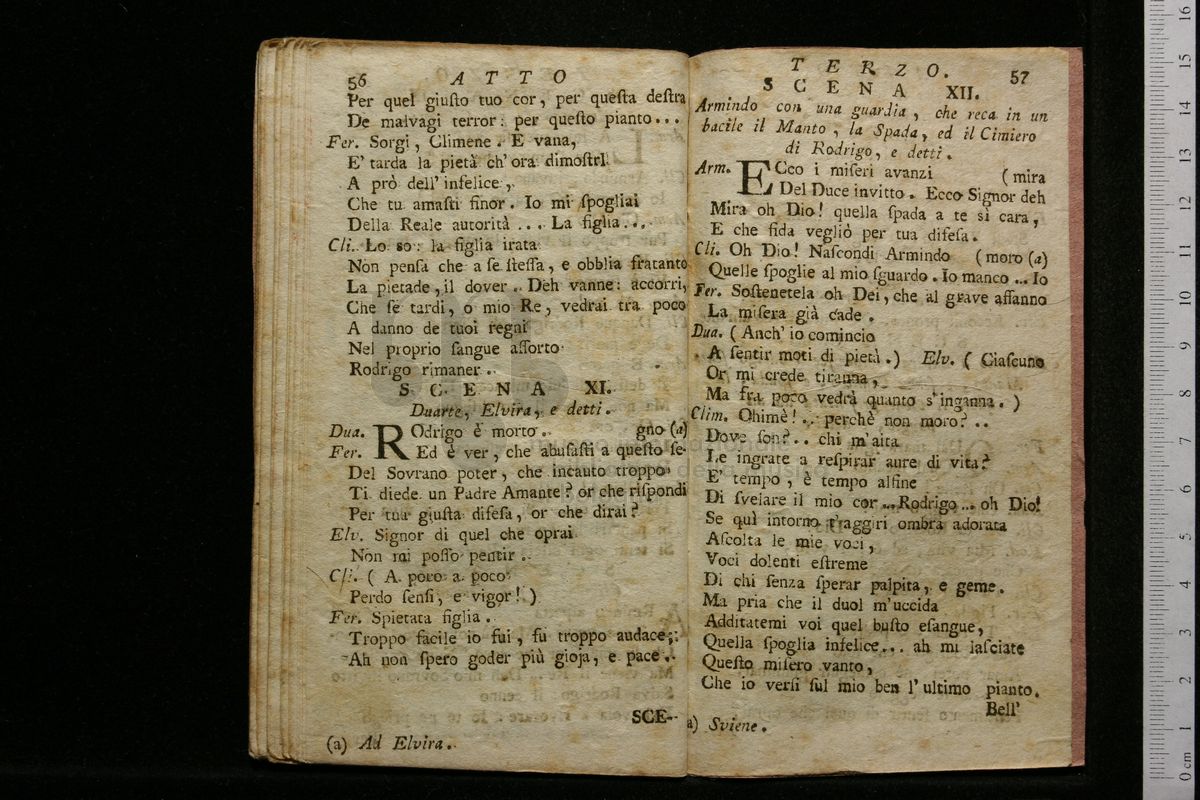 56 ATTO
Per quel giuſto tuo cor, per queſta deſtra
De malvagi terror: per queſto pianto...
Fer. Sorgi, Climene. E vana,
E' tarda la pietà ch' ora dimoſtri
A prò dell' infelice,
Che tu amaſti finor. Io mi ſpogliai
Della Reale autorità ... La figlia...
Cli. Lo so: la figlia irata
Non penſa che a ſe ſteſſa, e obblia fratanto
La pietade, il dover.. Deh vanne: accorri,
Che ſe tardi, o mio Re, vedrai tra poco
A danno de tuoi regni
Nel proprio ſangue aſſorto
Rodrigo rimaner..
SCENA XI.
Duarte, Elvira, e detti.
Dua. ROdrigo è morto. gno (a)
Fer. Ed è ver, che abuſaſti a queſto ſe-
Del Sovrano poter, che incauto troppo
Ti diede un Padre Amante? or che riſpondi
Per tua giuſta difeſa, or che dirai?
Elv. Signor di quel che oprai
Non mi poſſo pentir..
Cli. ( A poco a poco
Perdo ſenſi, e vigor! )
Fer. Spietata figlia.
Troppo facile io fui, fu troppo audace;
Ah non ſpero goder più gioja, e pace.
SCE-
(a) Ad Elvira.
TERZO. 57
SCENA XII.
Armindo con una guardia, che reca in un
bacile il Manto, la Spada, ed il Cimiero
di Rodrigo, e detti.
Arm. ECco i miſeri avanzi (mira
Del Duce invitto. Ecco Signor deh
Mira oh Dio! quella ſpada a te sì cara,
E che fida vegliò per tua difeſa.
Cli. Oh Dio! Naſcondi Armindo (moro (a)
Quelle ſpoglie al mio ſguardo. Io manco ... Io
Fer. Soſtenetela oh Dei, che al grave affanno
La miſera già cade.
Dua. ( Anch' io comincio
A ſentir moti di pietà.) Elv. ( Ciaſcuno
Or mi crede tiranna,
Ma fra poco vedrà quanto s'inganna. )
Clim. Ohimè!.. perchè non moro?..
Dove ſon?.. chi m'aita
Le ingrate a reſpirar aure di vita?
E' tempo, è tempo alfine
Di ſvelare il mio cor ... Rodrigo ... oh Dio!
Se quì intorno t'aggiri ombra adorata
Aſcolta le mie voci,
Voci dolenti eſtreme
Di chi ſenza ſperar palpita, e geme.
Ma pria che il duol m'uccida
Additatemi voi quel buſto eſangue,
Quella ſpoglia infelice... ah mi laſciate
Queſto miſero vanto,
Che io verſi ſul mio ben l'ultimo pianto.
Bell'
a) Sviene.
16
15
14
13
12
11
10
9
8
7
6
5
4
3
2
1
0 cm